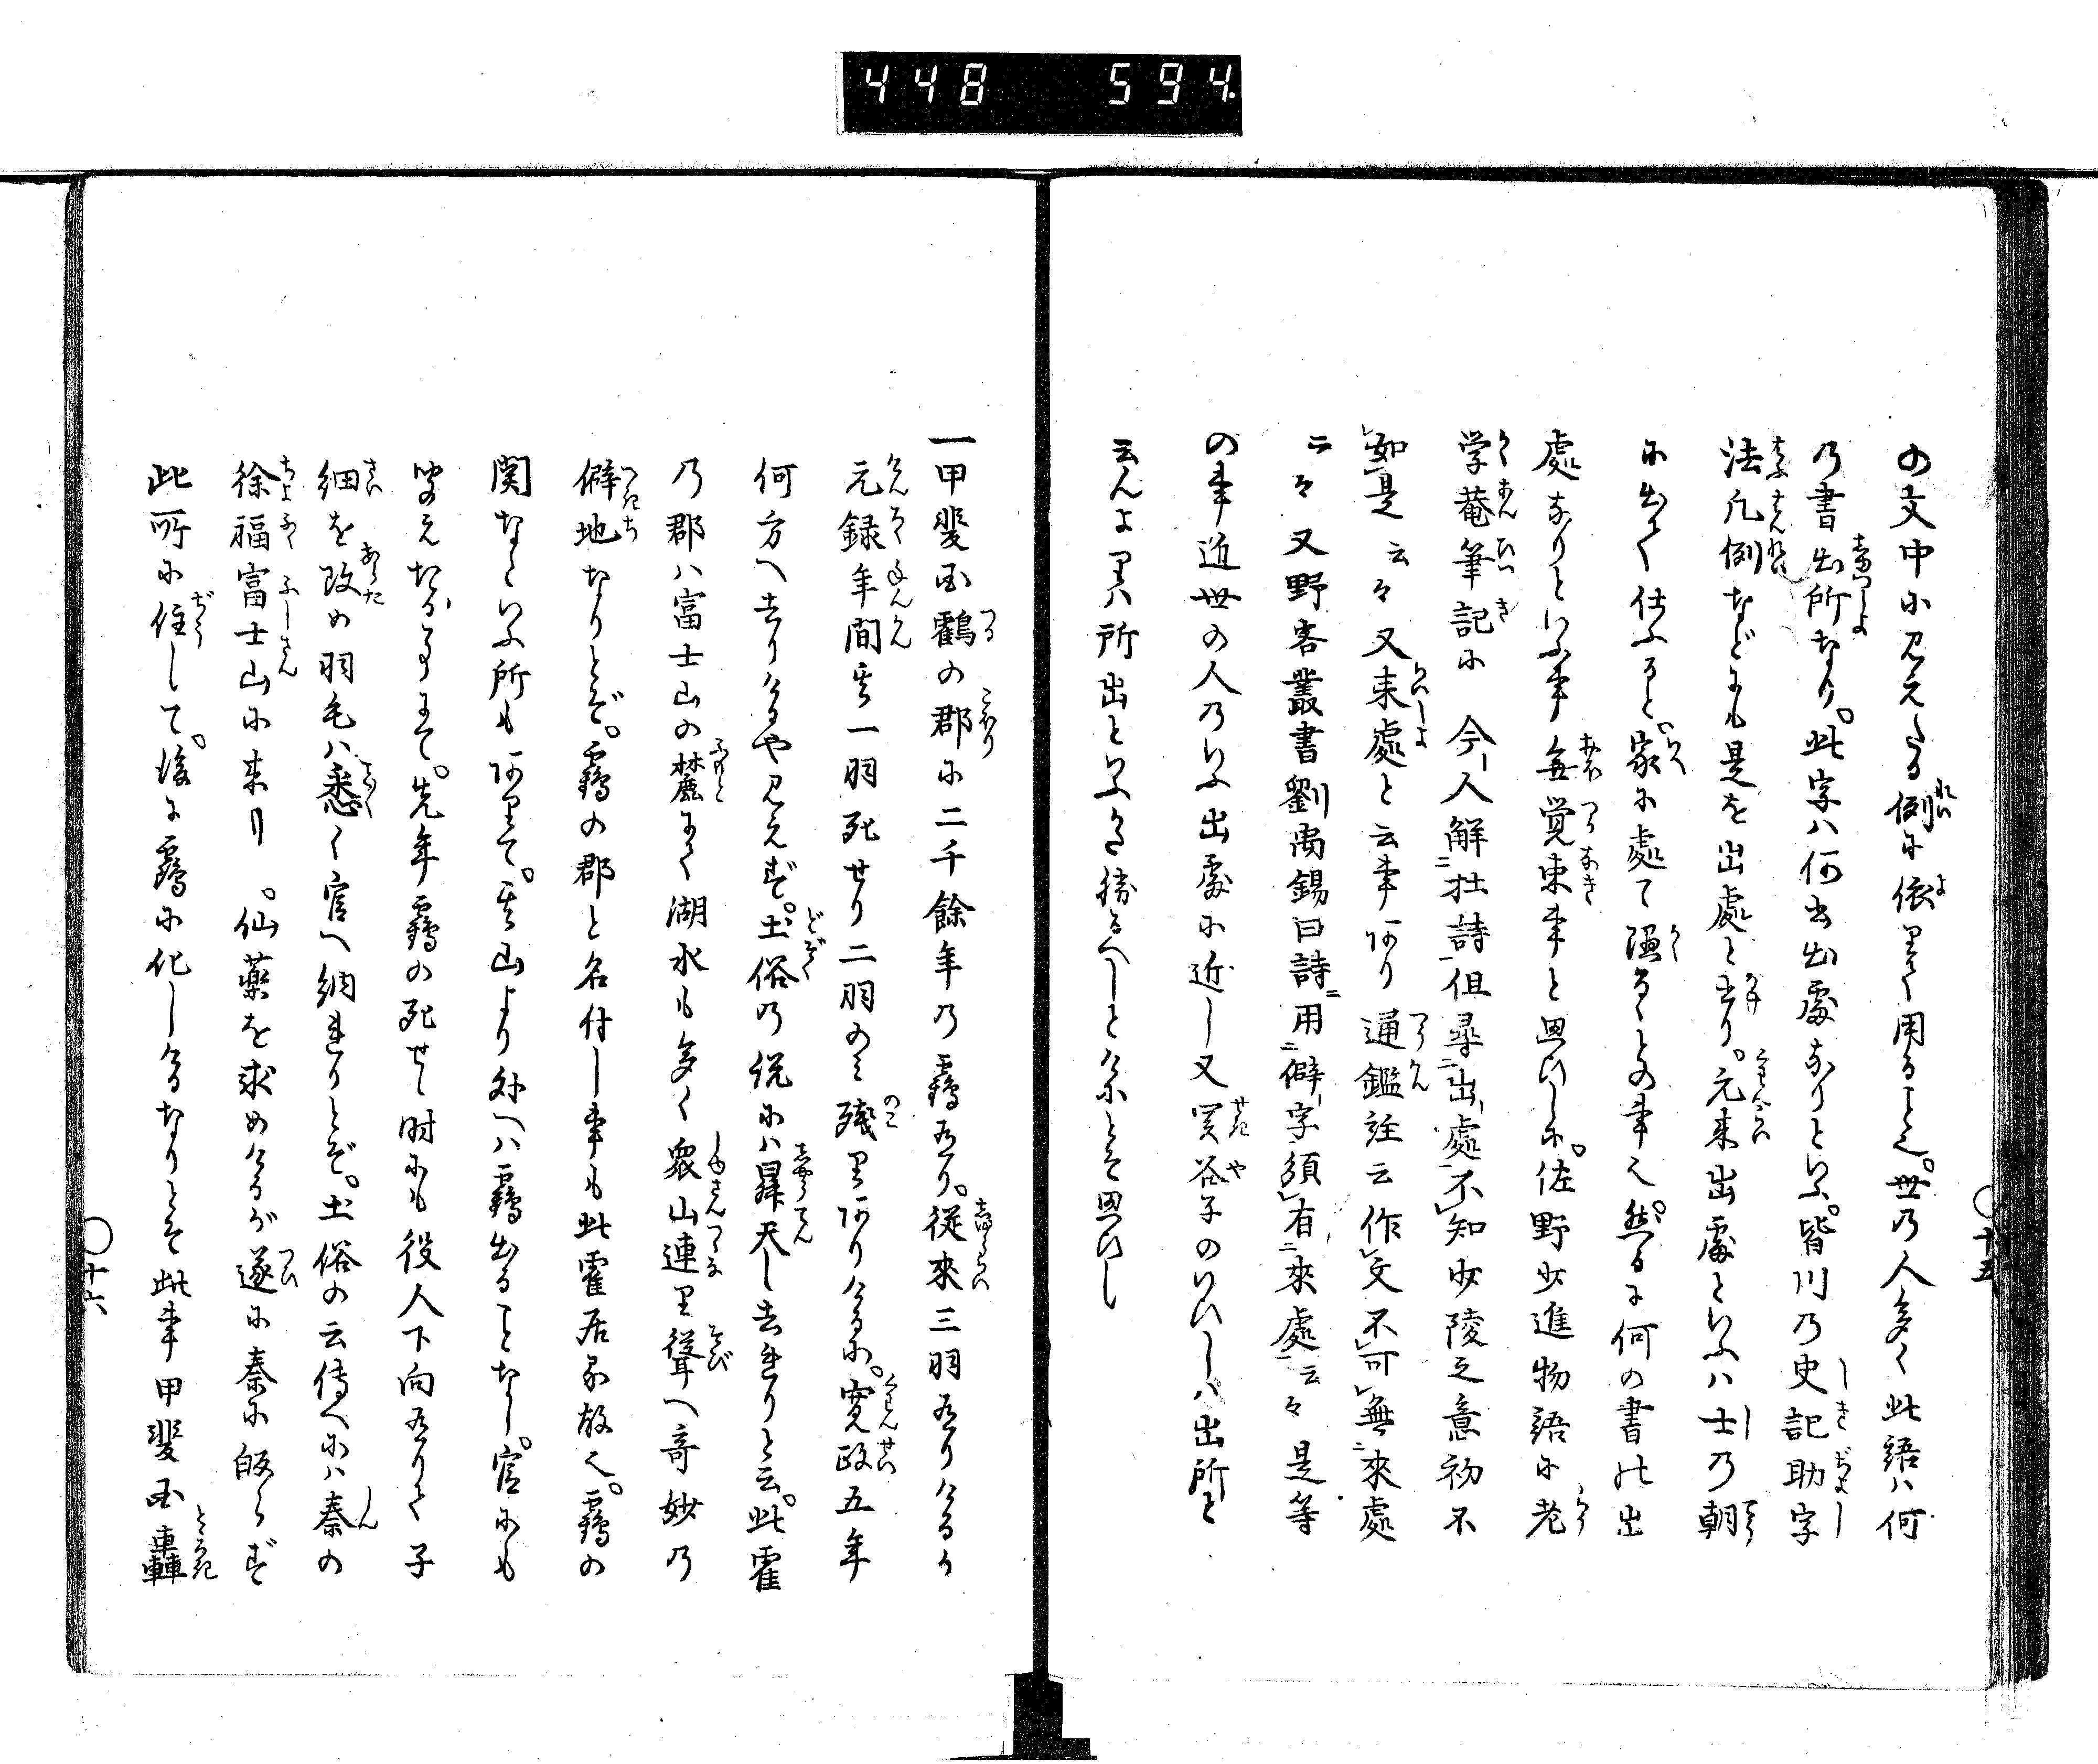 448 594
の文中に見えたる例に依りて用ることなり。世の人多く此語は何
の書出所なり。此字は何書出處なりといふ。皆川の史記助字
法凡例などにも是を出處と書り。元来出處といふは士の朝
に出て仕ふると。家に處て隠るとの事也。然るに何の書の出
處なりといふ事無覚束事と思ひしに。佐野少進物語に老
学菴筆記に 今人解杜詩但尋出處不知少陵之意初不
如是云々又来處と云事あり通鑑註云作文不可無來處
云々又野客叢書劉禹錫曰詩用僻字須有來處云々是等
の事近世の人のいふ出處に近し又関谷子のいひしは出所と
云んよりは所出といふかた勝るべしとなんとそ思ひし
十五
一甲斐国鶴の郡に二千餘年の靏有り。従來三羽有りけるか
元録年間其一羽死せり二羽のミ殘りありけるに。寛政五年
何方へ去りけるや見えず。土俗の説には昇天し去れりと云。此靏
の郡は富士山の麓にて湖水も多く衆山連り聳へ奇妙の
僻地なりとぞ。靏の郡と名付し事も此靏居る故也。靏の
関なといふ所もありて。其山より外へは靏出ることなし。官にも
聞のえたる事にて。先年靏の死せし時にも役人下向有りて子
細を改め羽毛は悉く官へ納れりとぞ。土俗の云傳へには秦の
徐福富士山に来り。仙薬を求めけるが遂に秦に皈らず
此所に住して。後に靏に化しけるなりとそ此事甲斐国轟
十六